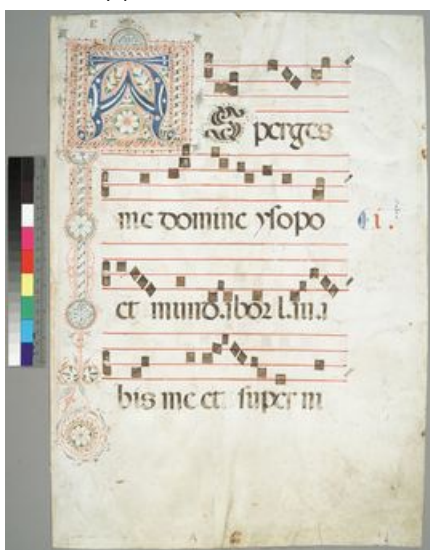 A
Sperges
me domine ysopo
i.
et mundabor laua
bis me et super ni